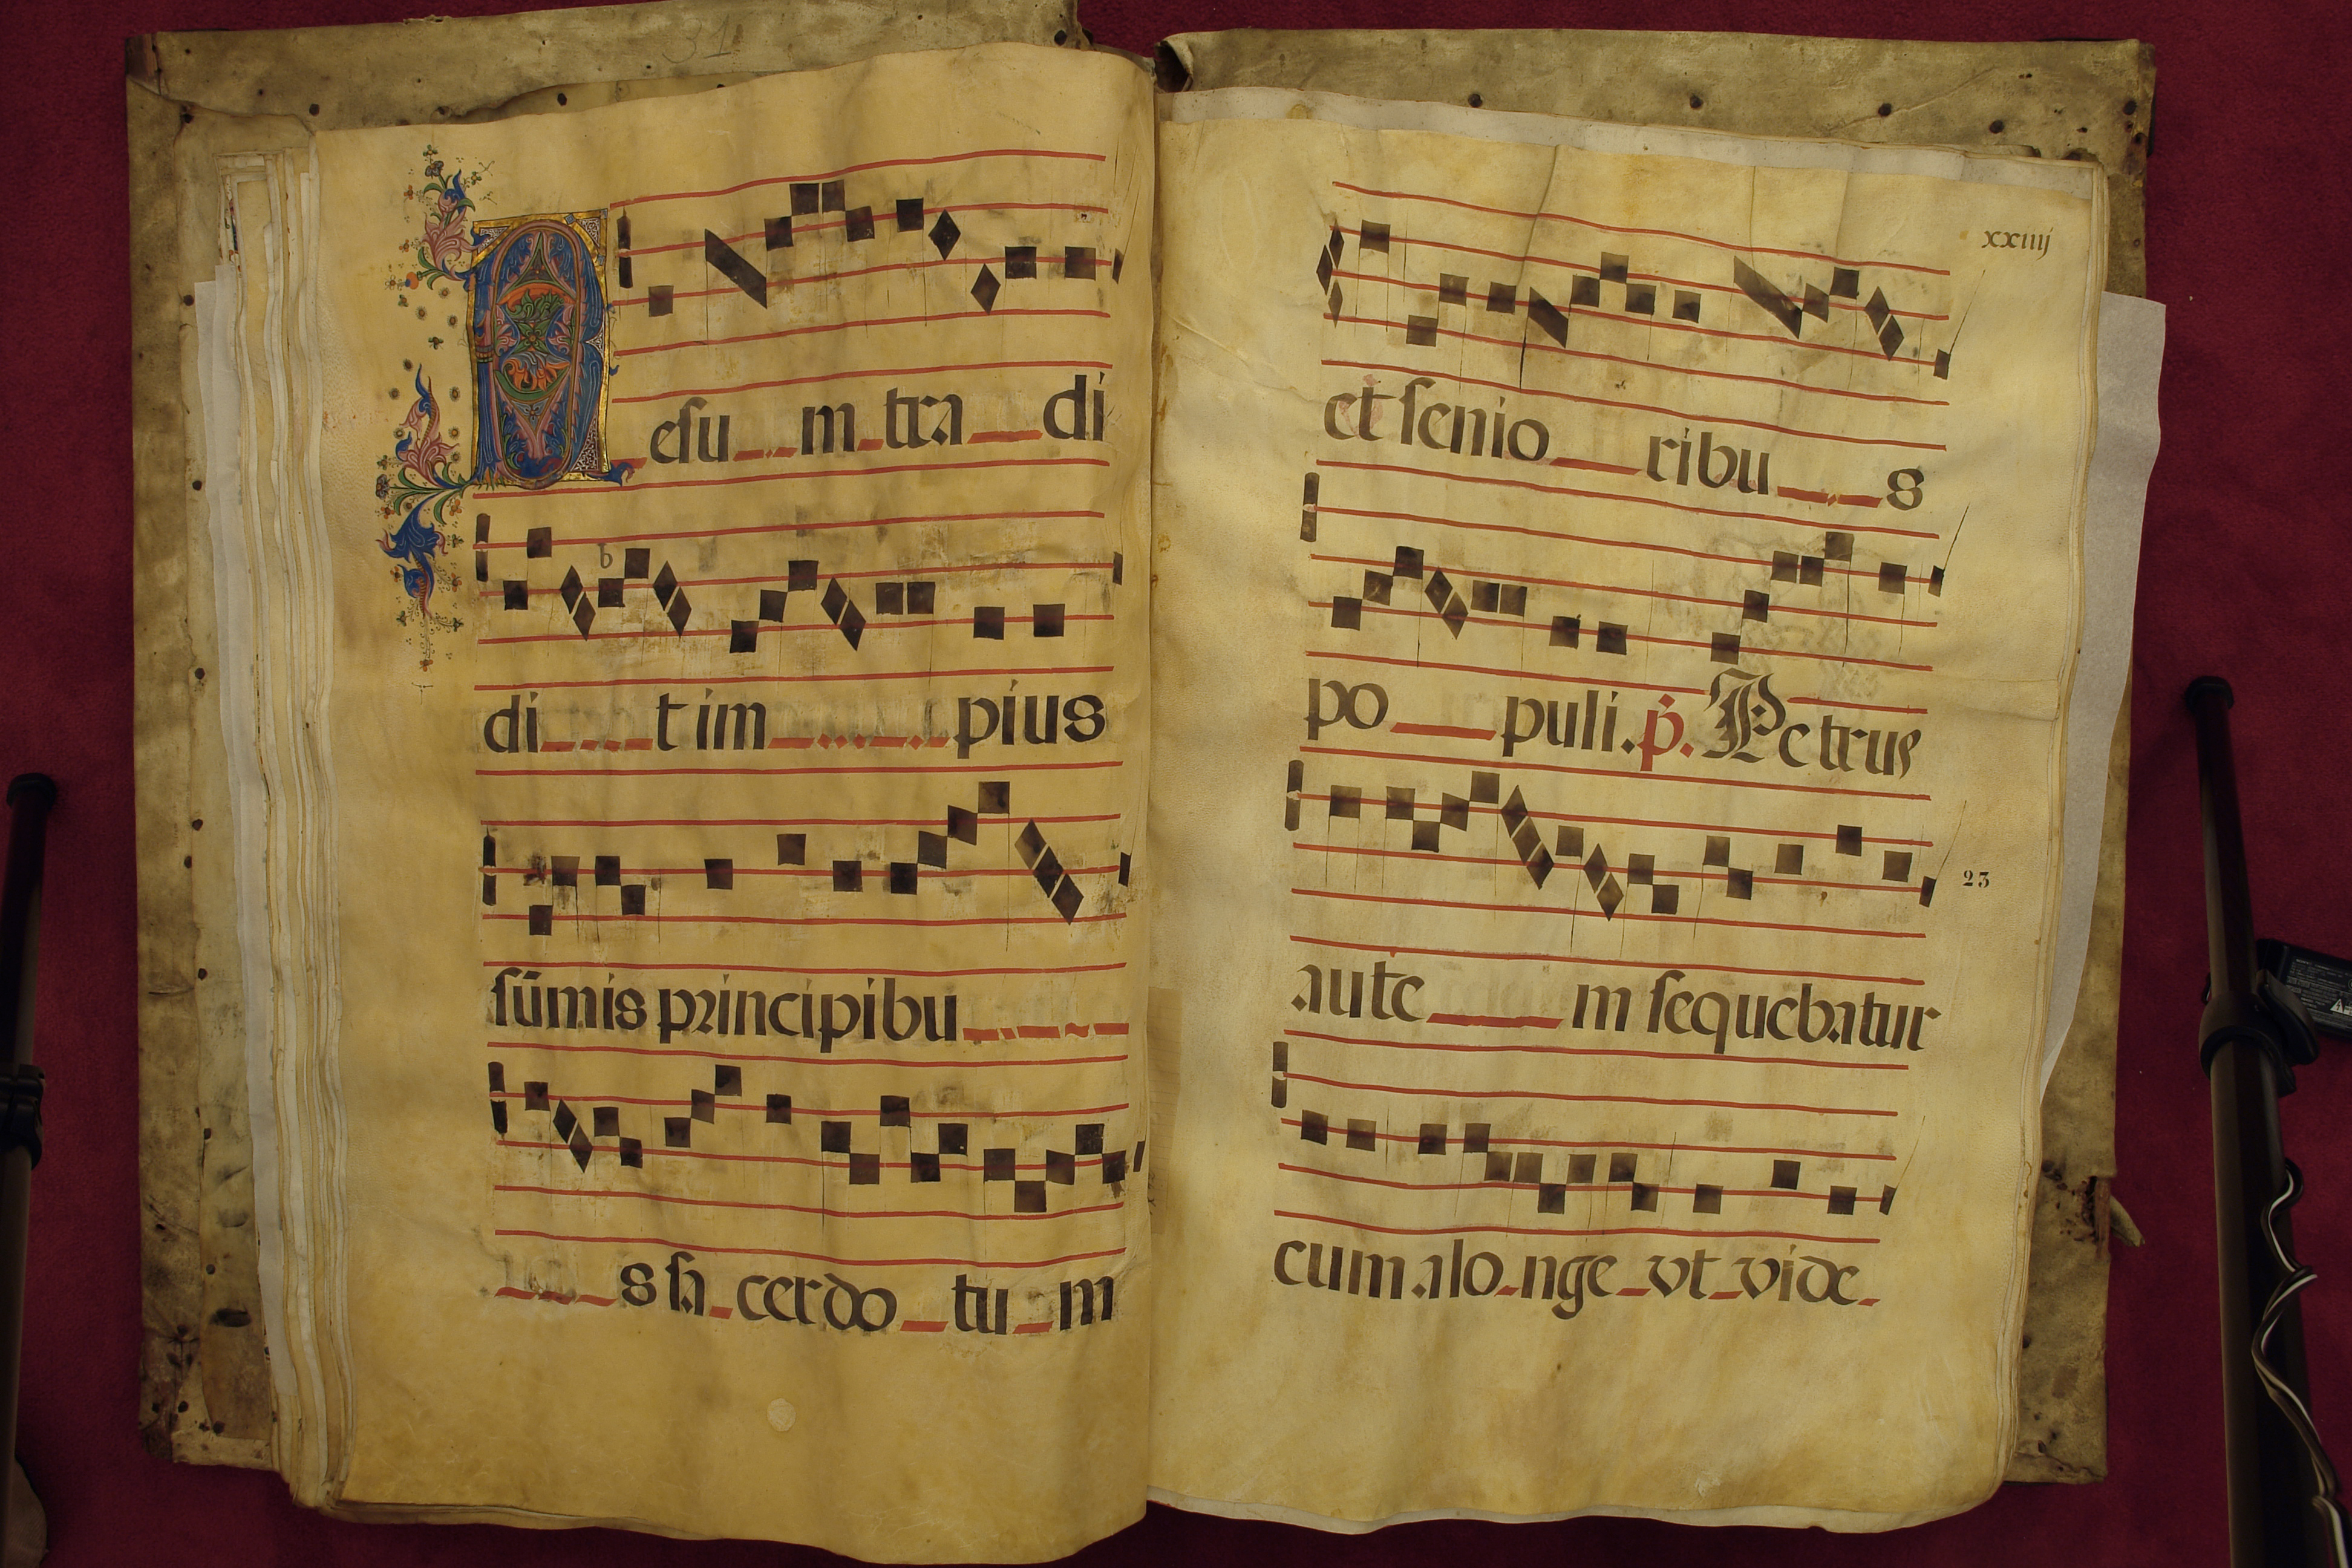 31
Iesu m tra di
b
di t im pius
sūmis principibu
s sa cerdo tu m
xxiiij
et senio ribu s
po puli. p. Petrus
23
aute m sequebatur
eum a lo nge vt vide